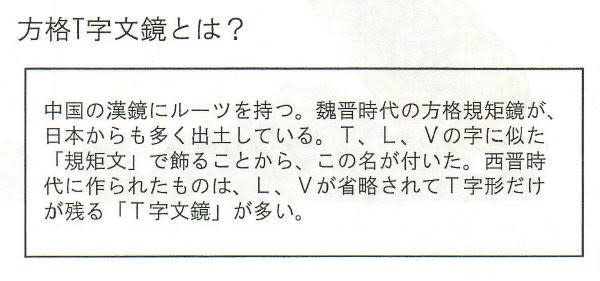 方格T字文鏡とは?
中国の漢鏡にルーツを持つ。魏晋時代の方格規矩鏡が、
日本からも多く出土している。T、L、Vの字に似た
「規矩文」で飾ることから、この名が付いた。西晋時
代に作られたものは、L、Vが省略されてT字形だけ
が残る「T字文鏡」が多い。